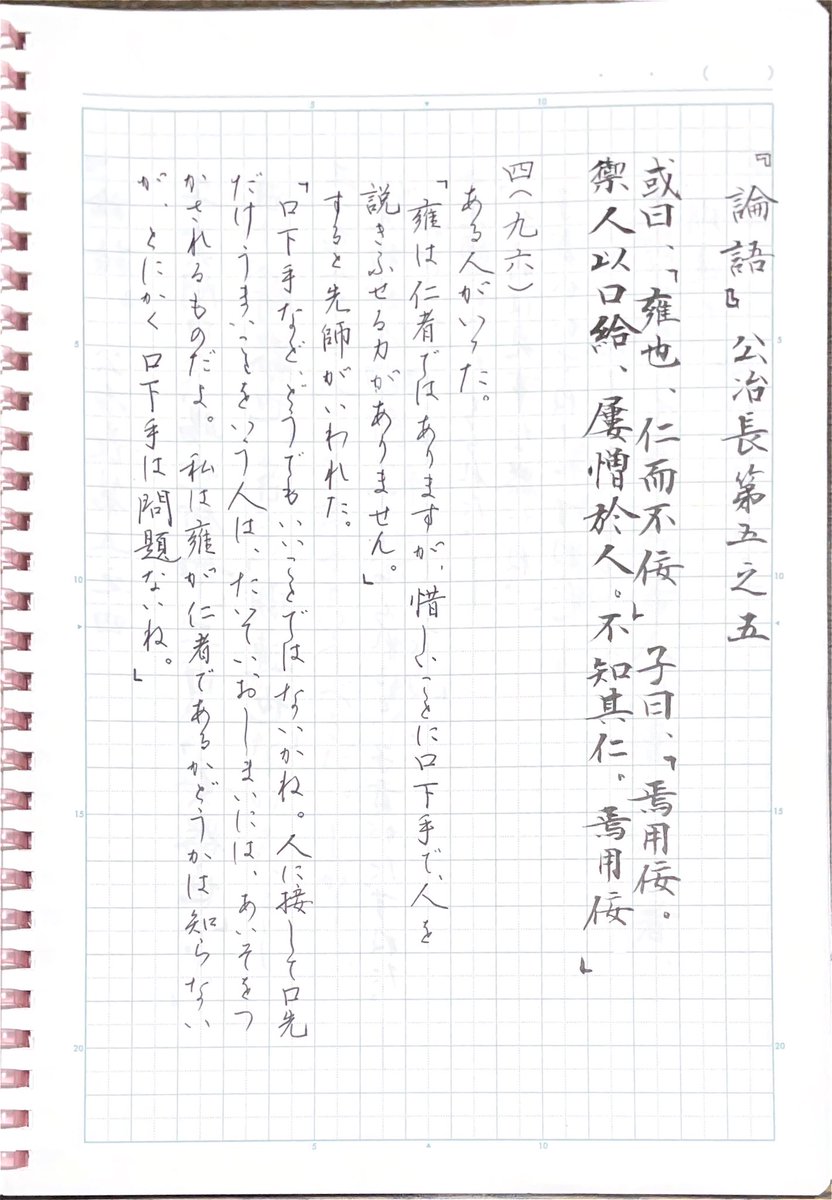 『論語』公冶長第五之五
或曰、「雍也、仁而不佞」子曰、「焉用佞。
禦人以口給、屢憎於人。不知其仁。焉用佞」
四(九六)
ある人がいった。
「雍は仁者ではありますが、惜しいことに口下手で、人を
説きふせる力がありません。」
すると先師がいわれた。
「口下手など、どうでもいいことではないかね。人に接して口先
だけうまいことをいう人は、たいていおしまいには、あいそをつ
かされるものだよ。私は雍が仁者であるかどうかは知らない
が、とにかく口下手は問題ないね。」
5
10
5
10
15
20
5
10
15
20
5
10